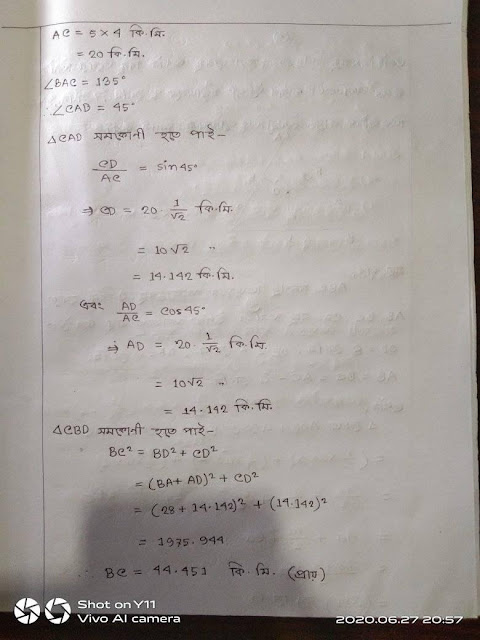 AC = 5 × 4 কি.মি.
= 20 কি.মি.
∠BAC = 135°
∴ ∠CAD = 45°
△CAD সমকোণী হতে পাই-
CD/AC = sin45°
⇒ CD = 20 · 1/√2 কি.মি.
= 10√2 "
= 14.142 কি.মি.
এবং AD/AC = cos45°
⇒ AD = 20 · 1/√2 কি.মি.
= 10√2 "
= 14.142 কি.মি.
△CBD সমকোণী হতে পাই-
BC² = BD² + CD²
= (BA + AD)² + CD²
= (28 + 14.142)² + (14.142)²
= 1975.944
∴ BC = 44.451 কি.মি. (প্রায়)
Shot on Y11
Vivo AI camera
2020.06.27 20:57